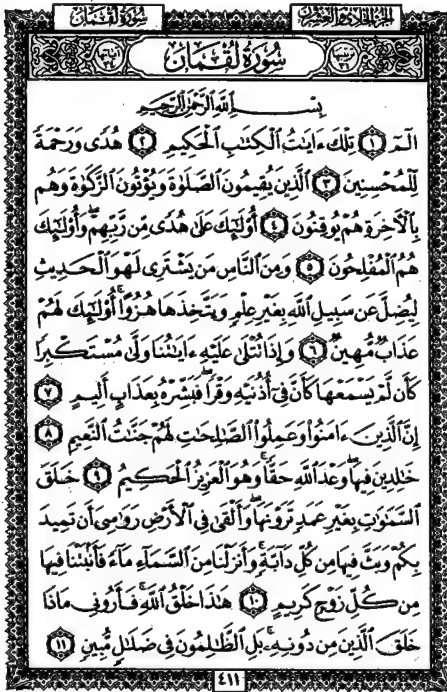 سُورَةُ لُقْمَانَ
الجزء الحادي والعشرون
سُورَةُ لُقْمَانَ
بِسْمِ اللَّهِ الرَّحْمَٰنِ الرَّحِيمِ
الٓمٓ ١ تِلْكَ ءَايَٰتُ ٱلْكِتَٰبِ ٱلْحَكِيمِ ٢ هُدًى وَرَحْمَةً
لِّلْمُحْسِنِينَ ٣ ٱلَّذِينَ يُقِيمُونَ ٱلصَّلَوٰةَ وَيُؤْتُونَ ٱلزَّكَوٰةَ وَهُم
بِٱلْءَاخِرَةِ هُمْ يُوقِنُونَ ٤ أُو۟لَٰٓئِكَ عَلَىٰ هُدًى مِّن رَّبِّهِمْ ۖ وَأُو۟لَٰٓئِكَ
هُمُ ٱلْمُفْلِحُونَ ٥ وَمِنَ ٱلنَّاسِ مَن يَشْتَرِى لَهْوَ ٱلْحَدِيثِ
لِيُضِلَّ عَن سَبِيلِ ٱللَّهِ بِغَيْرِ عِلْمٍ وَيَتَّخِذَهَا هُزُوًا ۚ أُو۟لَٰٓئِكَ لَهُمْ
عَذَابٌ مُّهِينٌ ٦ وَإِذَا تُتْلَىٰ عَلَيْهِ ءَايَٰتُنَا وَلَّىٰ مُسْتَكْبِرًا
كَأَن لَّمْ يَسْمَعْهَا كَأَنَّ فِىٓ أُذُنَيْهِ وَقْرًا ۖ فَبَشِّرْهُ بِعَذَابٍ أَلِيمٍ ٧
إِنَّ ٱلَّذِينَ ءَامَنُوا۟ وَعَمِلُوا۟ ٱلصَّٰلِحَٰتِ لَهُمْ جَنَّٰتُ ٱلنَّعِيمِ ٨
خَٰلِدِينَ فِيهَا ۖ وَعْدَ ٱللَّهِ حَقًّا ۚ وَهُوَ ٱلْعَزِيزُ ٱلْحَكِيمُ ٩ خَلَقَ
ٱلسَّمَٰوَٰتِ بِغَيْرِ عَمَدٍ تَرَوْنَهَا ۖ وَأَلْقَىٰ فِى ٱلْأَرْضِ رَوَٰسِىَ أَن تَمِيدَ
بِكُمْ وَبَثَّ فِيهَا مِن كُلِّ دَآبَّةٍ ۚ وَأَنزَلْنَا مِنَ ٱلسَّمَآءِ مَآءً فَأَنۢبَتْنَا فِيهَا
مِن كُلِّ زَوْجٍ كَرِيمٍ ١٠ هَٰذَا خَلْقُ ٱللَّهِ فَأَرُونِى مَاذَا
خَلَقَ ٱلَّذِينَ مِن دُونِهِۦ ۚ بَلِ ٱلظَّٰلِمُونَ فِى ضَلَٰلٍ مُّبِينٍ ١١
٤١١